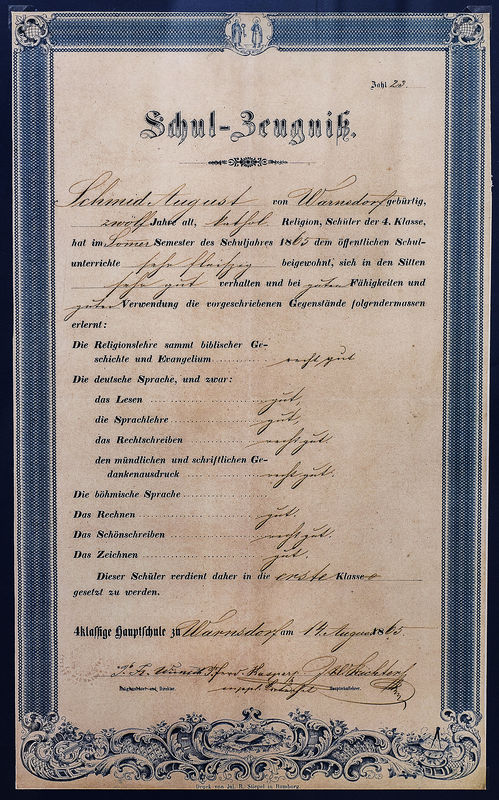 Zahl 23.
Schul-Zeugniß.
Schmid August von Warnsdorf gebürtig,
zwölf Jahre alt, kathol. Religion, Schüler der 4. Klasse,
hat im Somer Semester des Schuljahres 1865 dem öffentlichen Schul-
unterrichte sehr fleissig beigewohnt, sich in den Sitten
sehr gut verhalten und bei guten Fähigkeiten und
guter Verwendung die vorgeschriebenen Gegenstände folgendermassen
erlernt:
Die Religionslehre sammt biblischer Ge-
schichte und Evangelium recht gut
Die deutsche Sprache, und zwar:
das Lesen gut,
die Sprachlehre gut,
das Rechtschreiben recht gut.
den mündlichen und schriftlichen Ge-
dankenausdruck recht gut.
Die böhmische Sprache
Das Rechnen gut.
Das Schönschreiben recht gut.
Das Zeichnen gut.
Dieser Schüler verdient daher in die erste Klasse
gesetzt zu werden.
4klassige Hauptschule zu Warnsdorf am 14 August 1865.
Direktor.
Druck von Jul. R. Stiepel in Rumburg.